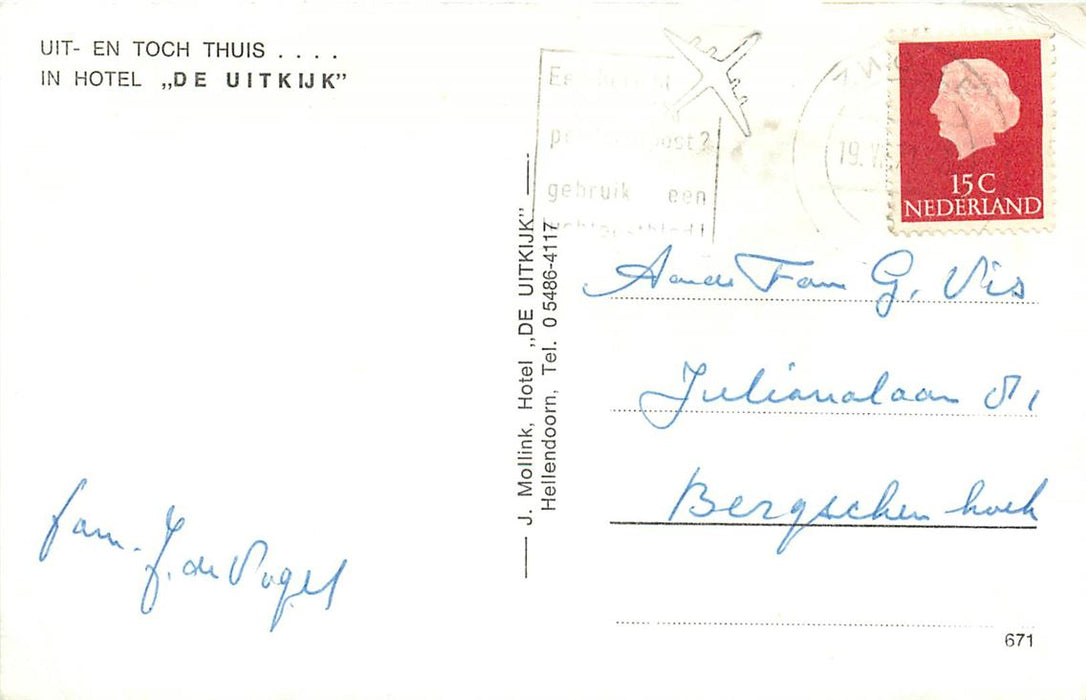 UIT- EN TOCH THUIS . . . .
IN HOTEL „DE UITKIJK”
fam. J. de Vogel
J. Mollink, Hotel „DE UITKIJK”
Hellendoorn, Tel. 0 5486-4117
post?
gebruik een
19.
15 C
NEDERLAND
Aan de Fam G. Vis
Julianalaan 81
Bergschenhoek
671